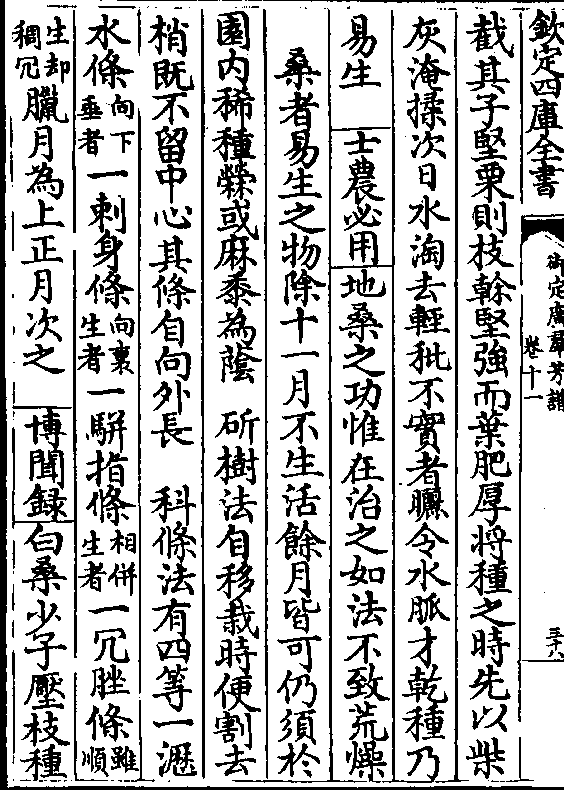 欽定四庫全書
御定廣群芳譜
卷十一
三十八
截其子堅栗則枝幹堅強而葉肥厚將種之時先以柴
灰淹揉次日水淘去輕秕不實者曬令水脈才乾種乃
易生 士農必用 地桑之功惟在治之如法不致荒燥
桑者易生之物除十一月不生活餘月皆可仍須於
園内稀種檾或麻黍為蔭 斫樹法自移栽時便割去
梢既不留中心其條自向外長 科條法有四等一瀝
水條向下垂者一刺身條向裏生者一騈指條相併生者一冗脞條雖順
生却稠冗臘月為上正月次之 博聞録 白桑少子壓枝種